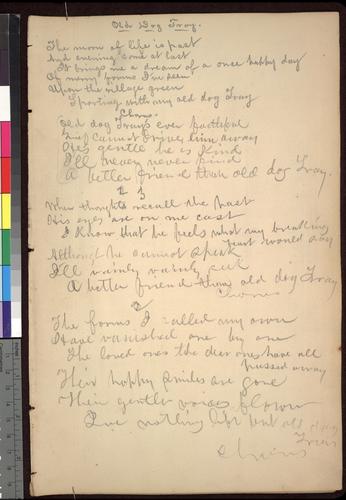 Old Dog Tray.
The morn of life is past
And evening come at last
It brings me a dream of a once happy day
Of merry forms I've seen
Upon the village green
Sporting with my old dog Tray
Chorus.
Old dog Trays ever faithful
Grief cannot drive him away
He's gentle he is kind
I'll never never find
A better friend than old dog Tray.
3
When thoughts recall the past
His eyes are on me cast
I know that he feels what my breaking
heart would say
Although he cannot speak
I'll vainly vainly
A better friend than old dog Tray
Chorus
2
The forms I called my own
Have vanished one by one
The loved ones the dear ones have all
passed away
Their happy smiles are gone
Their gentle voices flown
I've nothing left but old dog
Tray
Chorus